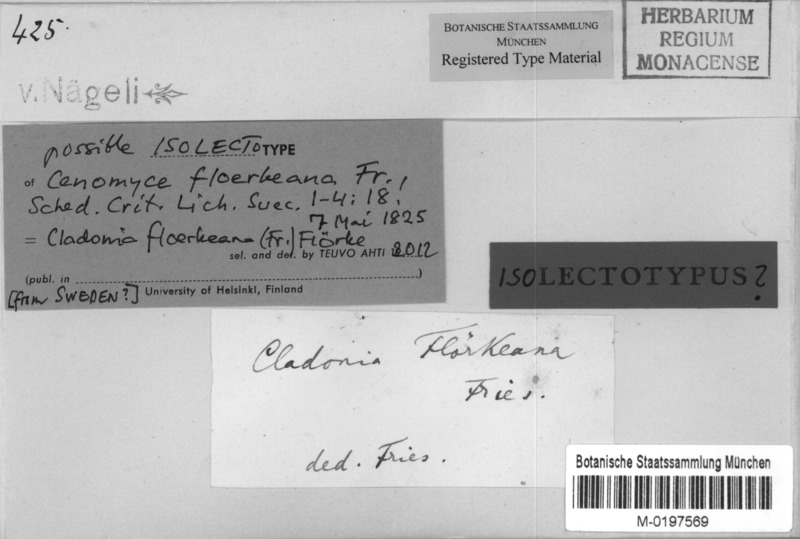 425.
v. Nägeli
BOTANISCHE STAATSSAMMLUNG
MÜNCHEN
Registered Type Material
HERBARIUM
REGIUM
MONACENSE
possible ISOLECTOTYPE
of Cenomyce floerkeana Fr.,
Sched. Crit. Lich. Suec. 1-4: 18.
7 Mai 1825
= Cladonia floerkeana (Fr.) Flörke
sel. and det. by TEUVO AHTI 2012
(publ. in )
[from SWEDEN?] University of Helsinki, Finland
ISOLECTOTYPUS?
Cladonia Flörkeana
Fries.
ded. Fries.
Botanische Staatssammlung München
M-0197569